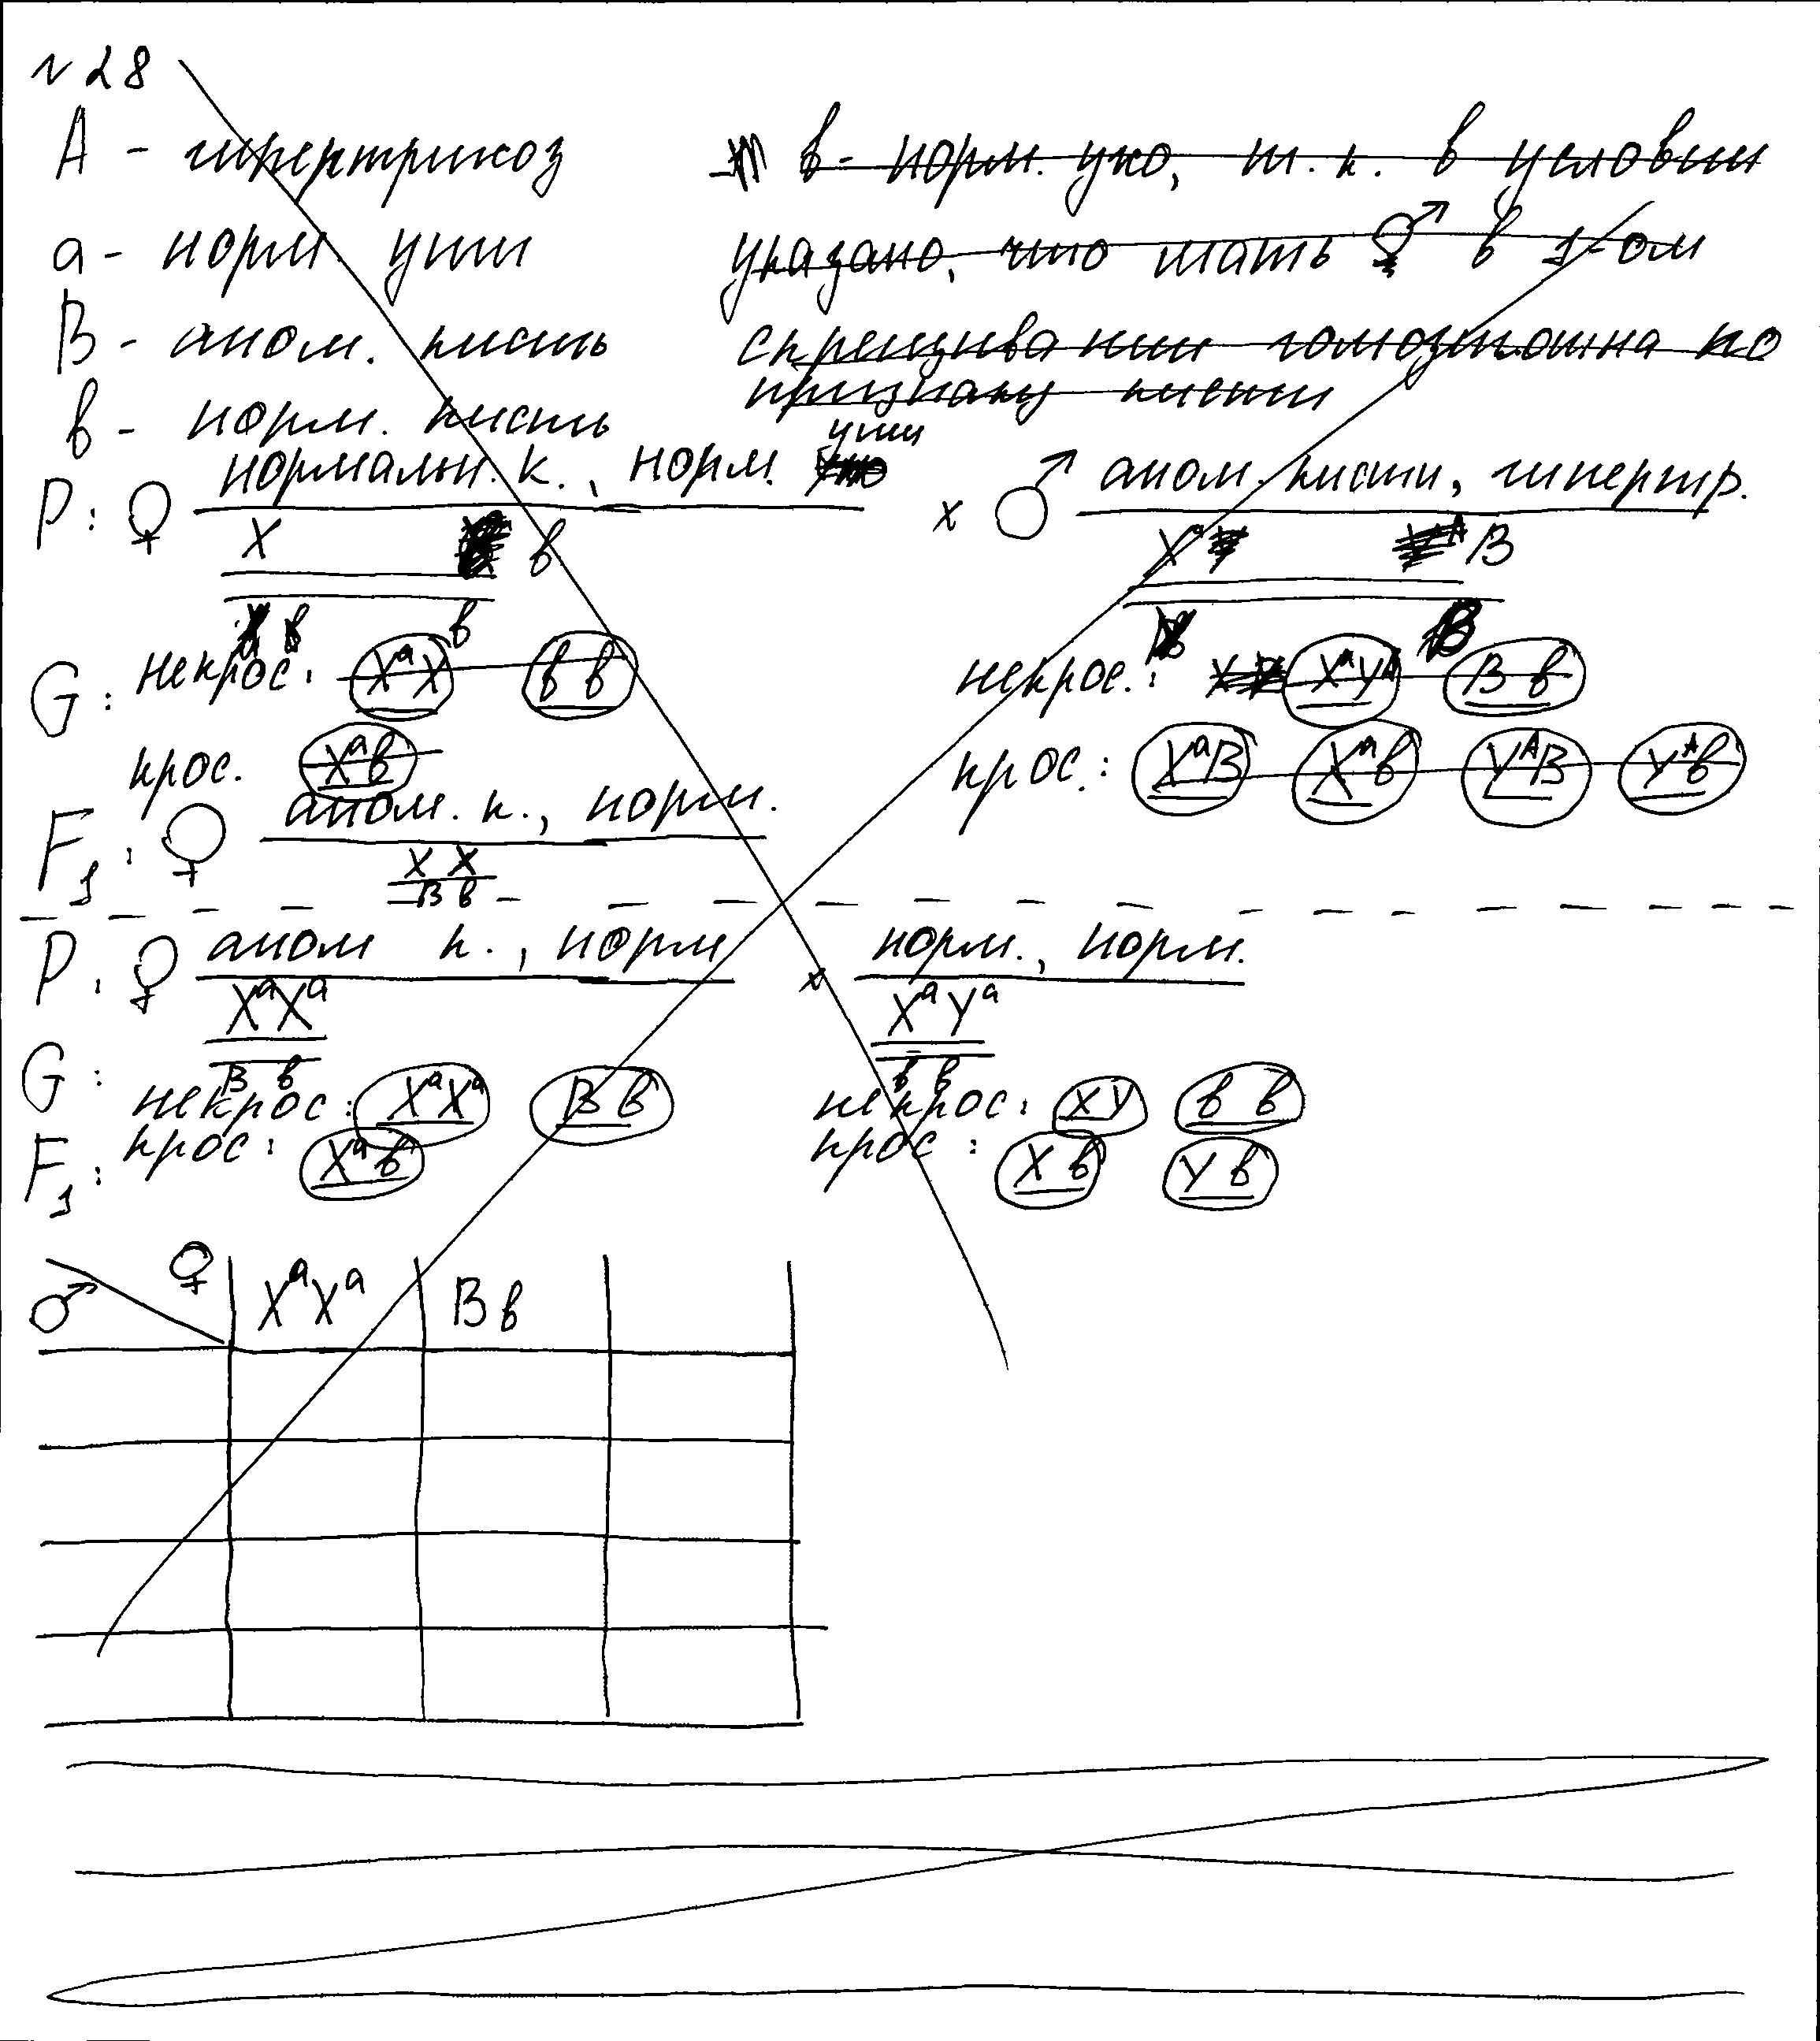 №28
А - гипертрихоз
а - норм. уши
В - аном. кисть
в - норм. кисть
в - норм. ухо, т.к. в условии
указано, что мать ♂ в 1-ом
скрещивании гомозиготна по
признаку кисти
уши
P: ♀ нормальн. к., норм. x ♂ аном. кисти, гипертр.
X в X B
в
G: некрос: XᵃX в в некрос.: XᵃYᴬ В в
крос. Xᵃв крос.: XᵃB Xᵃв YᴬB Yᴬв
F₁: ♀ аном. к., норм.
X X
В в
P: ♀ аном к., норм x норм., норм.
XᵃXᵃ XᵃYᵃ
В в в в
G: некрос: XᵃXᵃ В в некрос: XY в в
крос: Xᵃв крос: X в Y в
F₁:
♂ ♀ XᵃXᵃ Вв